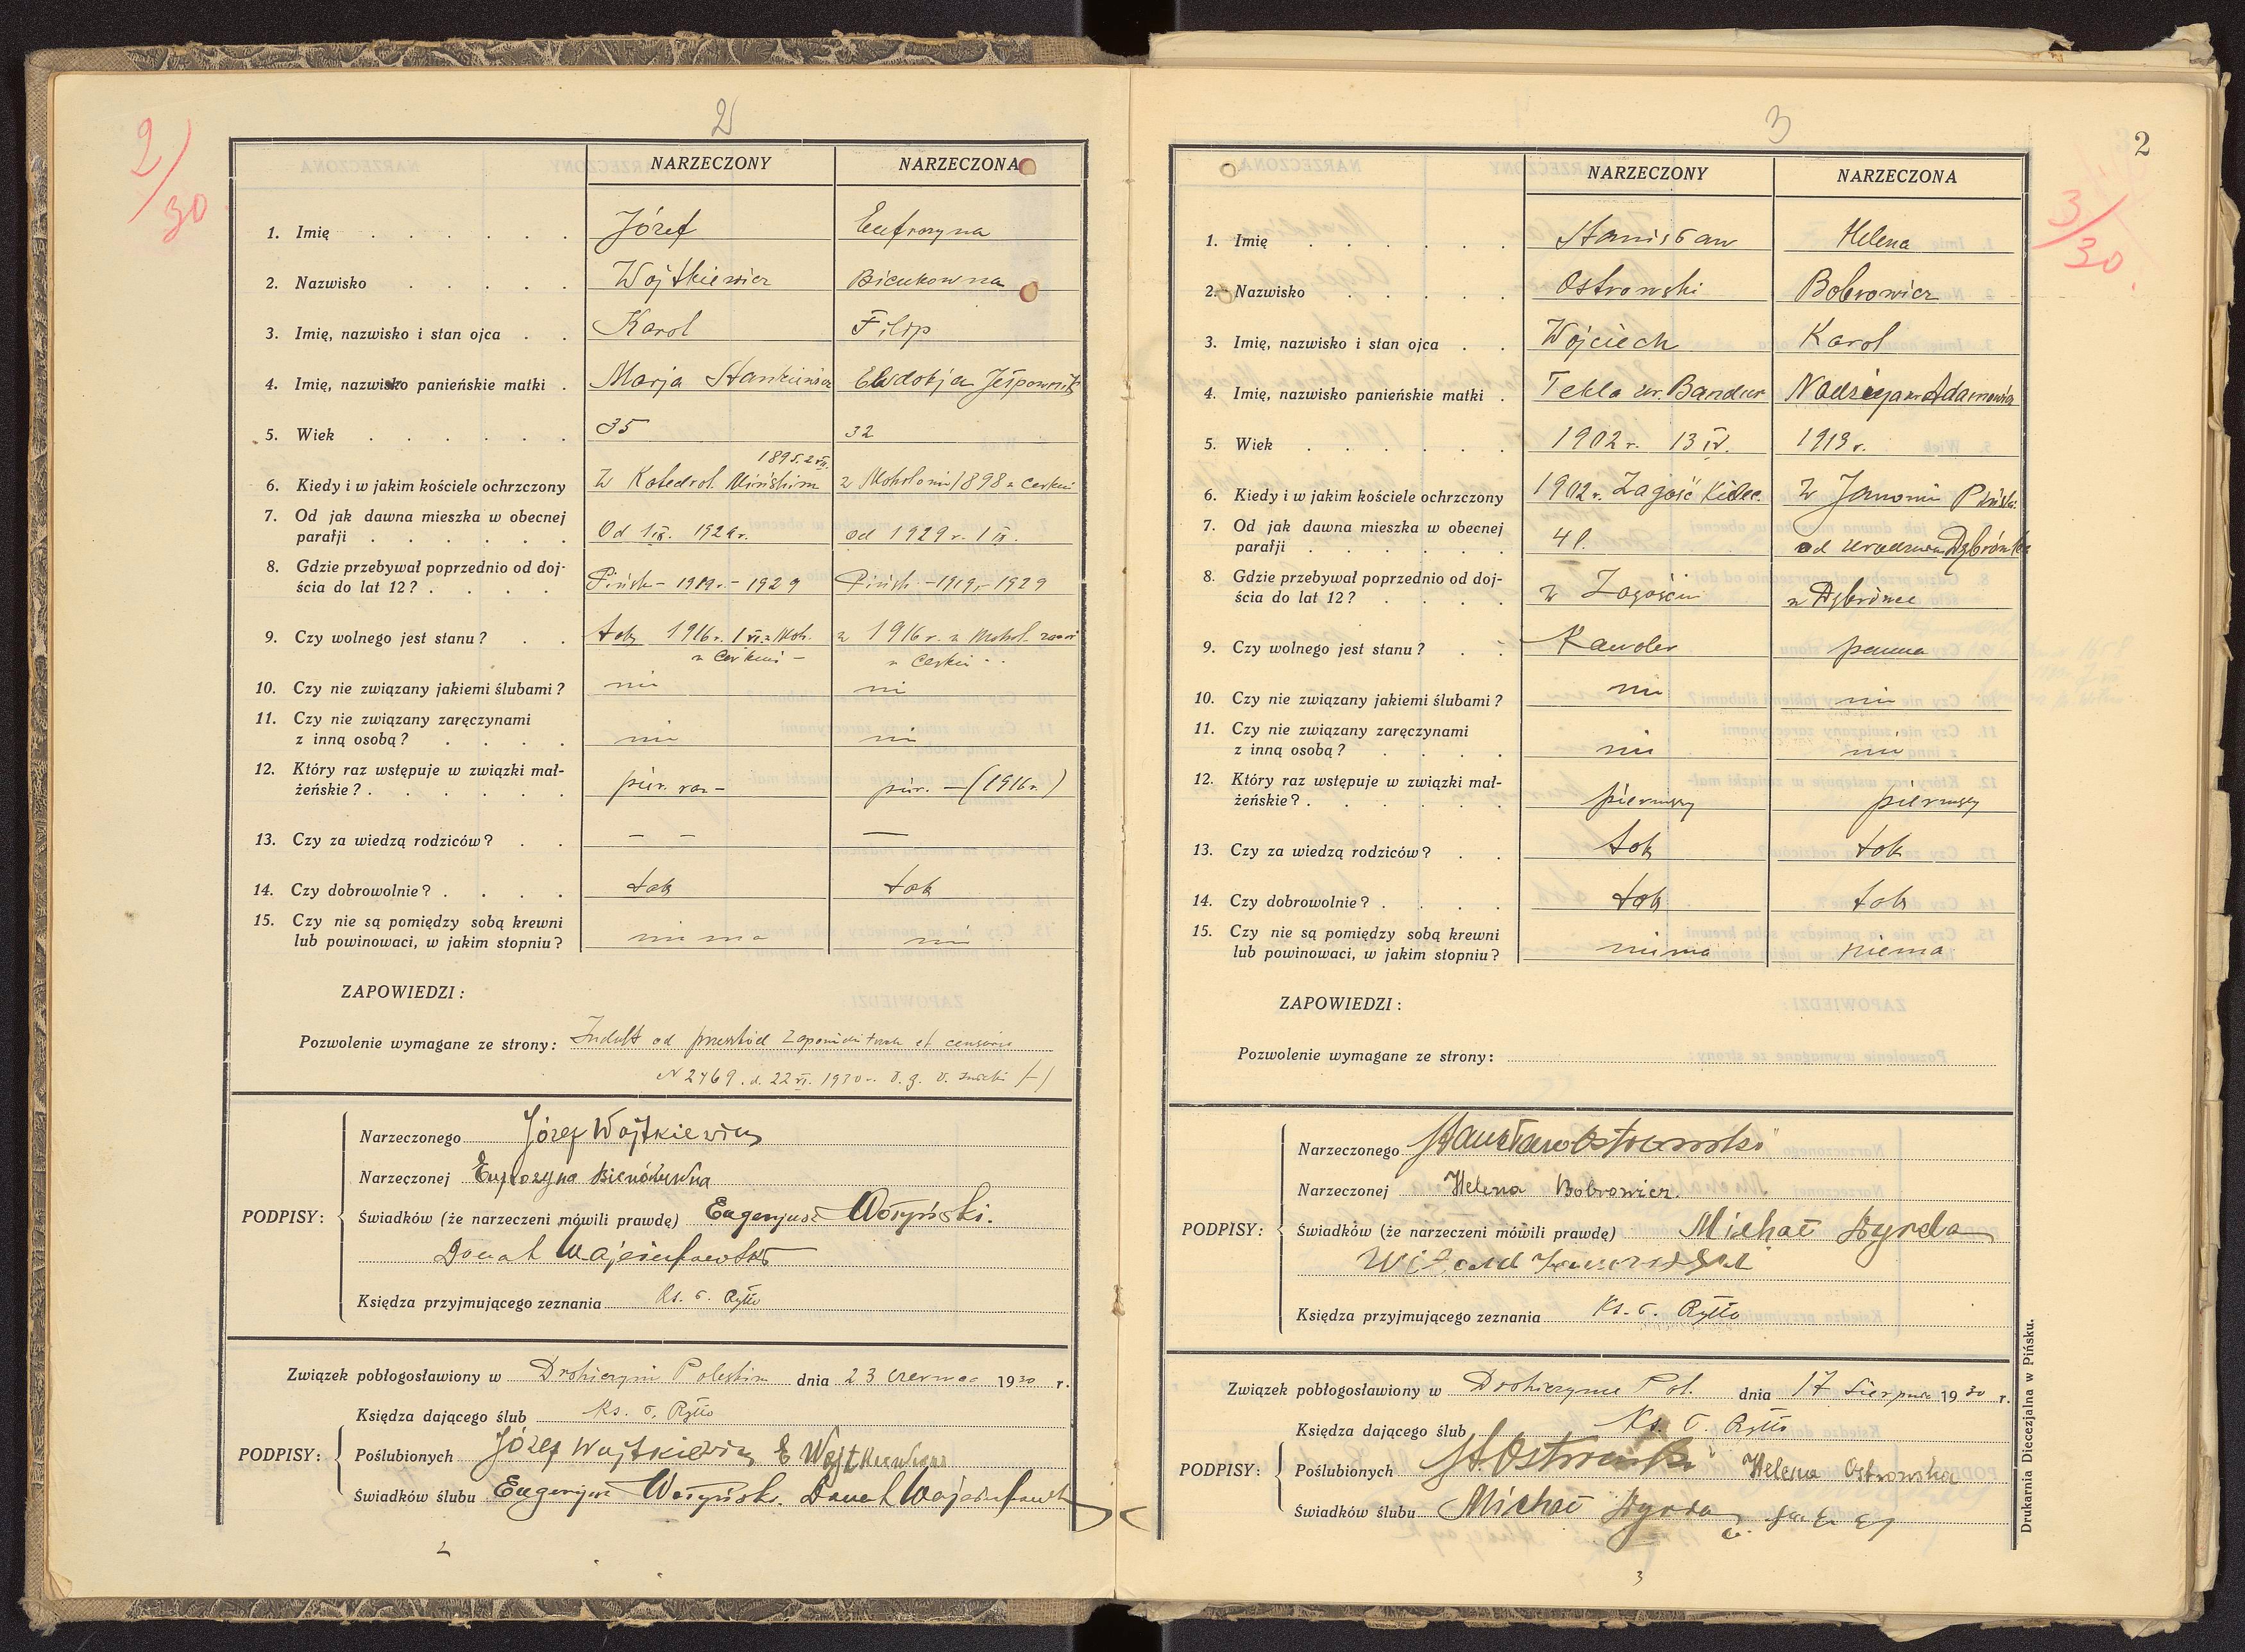 2
2/30
NARZECZONY NARZECZONA
1. Imię Józef Eufrozyna
2. Nazwisko Wojtkiewicz Bieńkowna
3. Imię, nazwisko i stan ojca Karol Filip
4. Imię, nazwisko panieńskie matki Marja Stankiewicz Ewdokja
5. Wiek 35 32
1895. 2 VII.
6. Kiedy i w jakim kościele ochrzczony W Katedral. Mińskim w 1898 w cerkwi
7. Od jak dawna mieszka w obecnej
parafji Od 1 IX. 1929 r. od 1929 r. 1 IX.
8. Gdzie przebywał poprzednio od doj-
ścia do lat 12? Pińsk - 1919 r. - 1929 Pińsk - 1919 r. - 1929
9. Czy wolnego jest stanu? tak 1916 r. 1 VI. w Moh. w 1916 r. w Mohol.
w cerkwi - w cerkwi -
10. Czy nie związany jakiemi ślubami? nie nie
11. Czy nie związany zaręczynami
z inną osobą? nie nie
12. Który raz wstępuje w związki mał-
żeńskie? pier. raz - pier. - (1916 r.)
13. Czy za wiedzą rodziców? - - —
14. Czy dobrowolnie? tak tak
15. Czy nie są pomiędzy sobą krewni
lub powinowaci, w jakim stopniu? niema nie
ZAPOWIEDZI:
Pozwolenie wymagane ze strony: Indult od przeszkód
N 2469. d. 22 VI. 1930 r.
PODPISY:
Narzeczonego Józef Wojtkiewicz
Narzeczonej Eufrozyna
Świadków (że narzeczeni mówili prawdę) Eugenjusz Wołyński.
Donat
Księdza przyjmującego zeznania Ks. S. Ryłło
Związek pobłogosławiony w Drohiczynie Poleskim dnia 23 czerwca 1930 r.
Księdza dającego ślub Ks. S. Ryłło
PODPISY:
Poślubionych Józef Wojtkiewicz E Wojtkiewicz
Świadków ślubu Eugenjusz Wołyński. Donat
2
3
2
3/30
NARZECZONY NARZECZONA
1. Imię Stanisław Helena
2. Nazwisko Ostrowski Bobrowicz
3. Imię, nazwisko i stan ojca Wojciech Karol
4. Imię, nazwisko panieńskie matki Tekla Nadzieja Adamowicz
5. Wiek 1902 r. 13 IV. 1913 r.
6. Kiedy i w jakim kościele ochrzczony 1902 r. Zagość Kielec. W Janowie Pińsk.
7. Od jak dawna mieszka w obecnej
parafji 4 l. od urodzenia Dąbrówka
8. Gdzie przebywał poprzednio od doj-
ścia do lat 12? w Zagościu w Dąbrówce
9. Czy wolnego jest stanu? Kawaler panna
10. Czy nie związany jakiemi ślubami? nie nie
11. Czy nie związany zaręczynami
z inną osobą? nie nie
12. Który raz wstępuje w związki mał-
żeńskie? pierwszy pierwszy
13. Czy za wiedzą rodziców? tak tak
14. Czy dobrowolnie? tak tak
15. Czy nie są pomiędzy sobą krewni
lub powinowaci, w jakim stopniu? niema niema
ZAPOWIEDZI:
Pozwolenie wymagane ze strony:
PODPISY:
Narzeczonego Stanisław Ostrowski
Narzeczonej Helena Bobrowicz.
Świadków (że narzeczeni mówili prawdę) Michał Dyrda
Witold
Księdza przyjmującego zeznania Ks. S. Ryłło
Związek pobłogosławiony w Drohiczynie Pol. dnia 17 sierpnia 1930 r.
Księdza dającego ślub Ks. S. Ryłło
PODPISY:
Poślubionych St. Ostrowski Helena Ostrowska
Świadków ślubu Michał Dyrda
3
Drukarnia Diecezjalna w Pińsku.